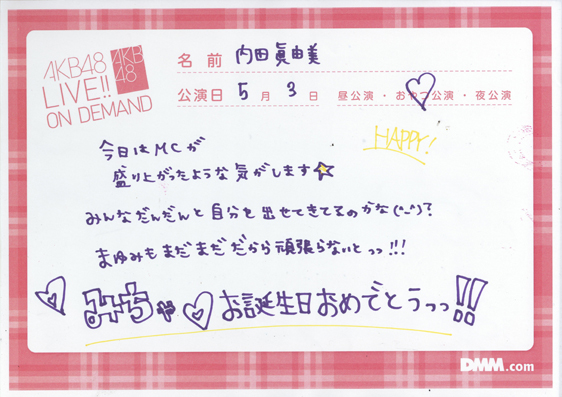 AKB48
LIVE!!
ON DEMAND
AKB
48
名前 内田眞由美
公演日 5月3日 昼公演・おやつ公演・夜公演
HAPPY!
今日はMCが
盛り上がったような気がします☆
みんなだんだんと自分を出せてきてるのかな(^-^)?
まゆみもまだまだだから頑張らないとっっ!!!
♡みちゃ♡お誕生日おめでとうっっ!!
DMM.com